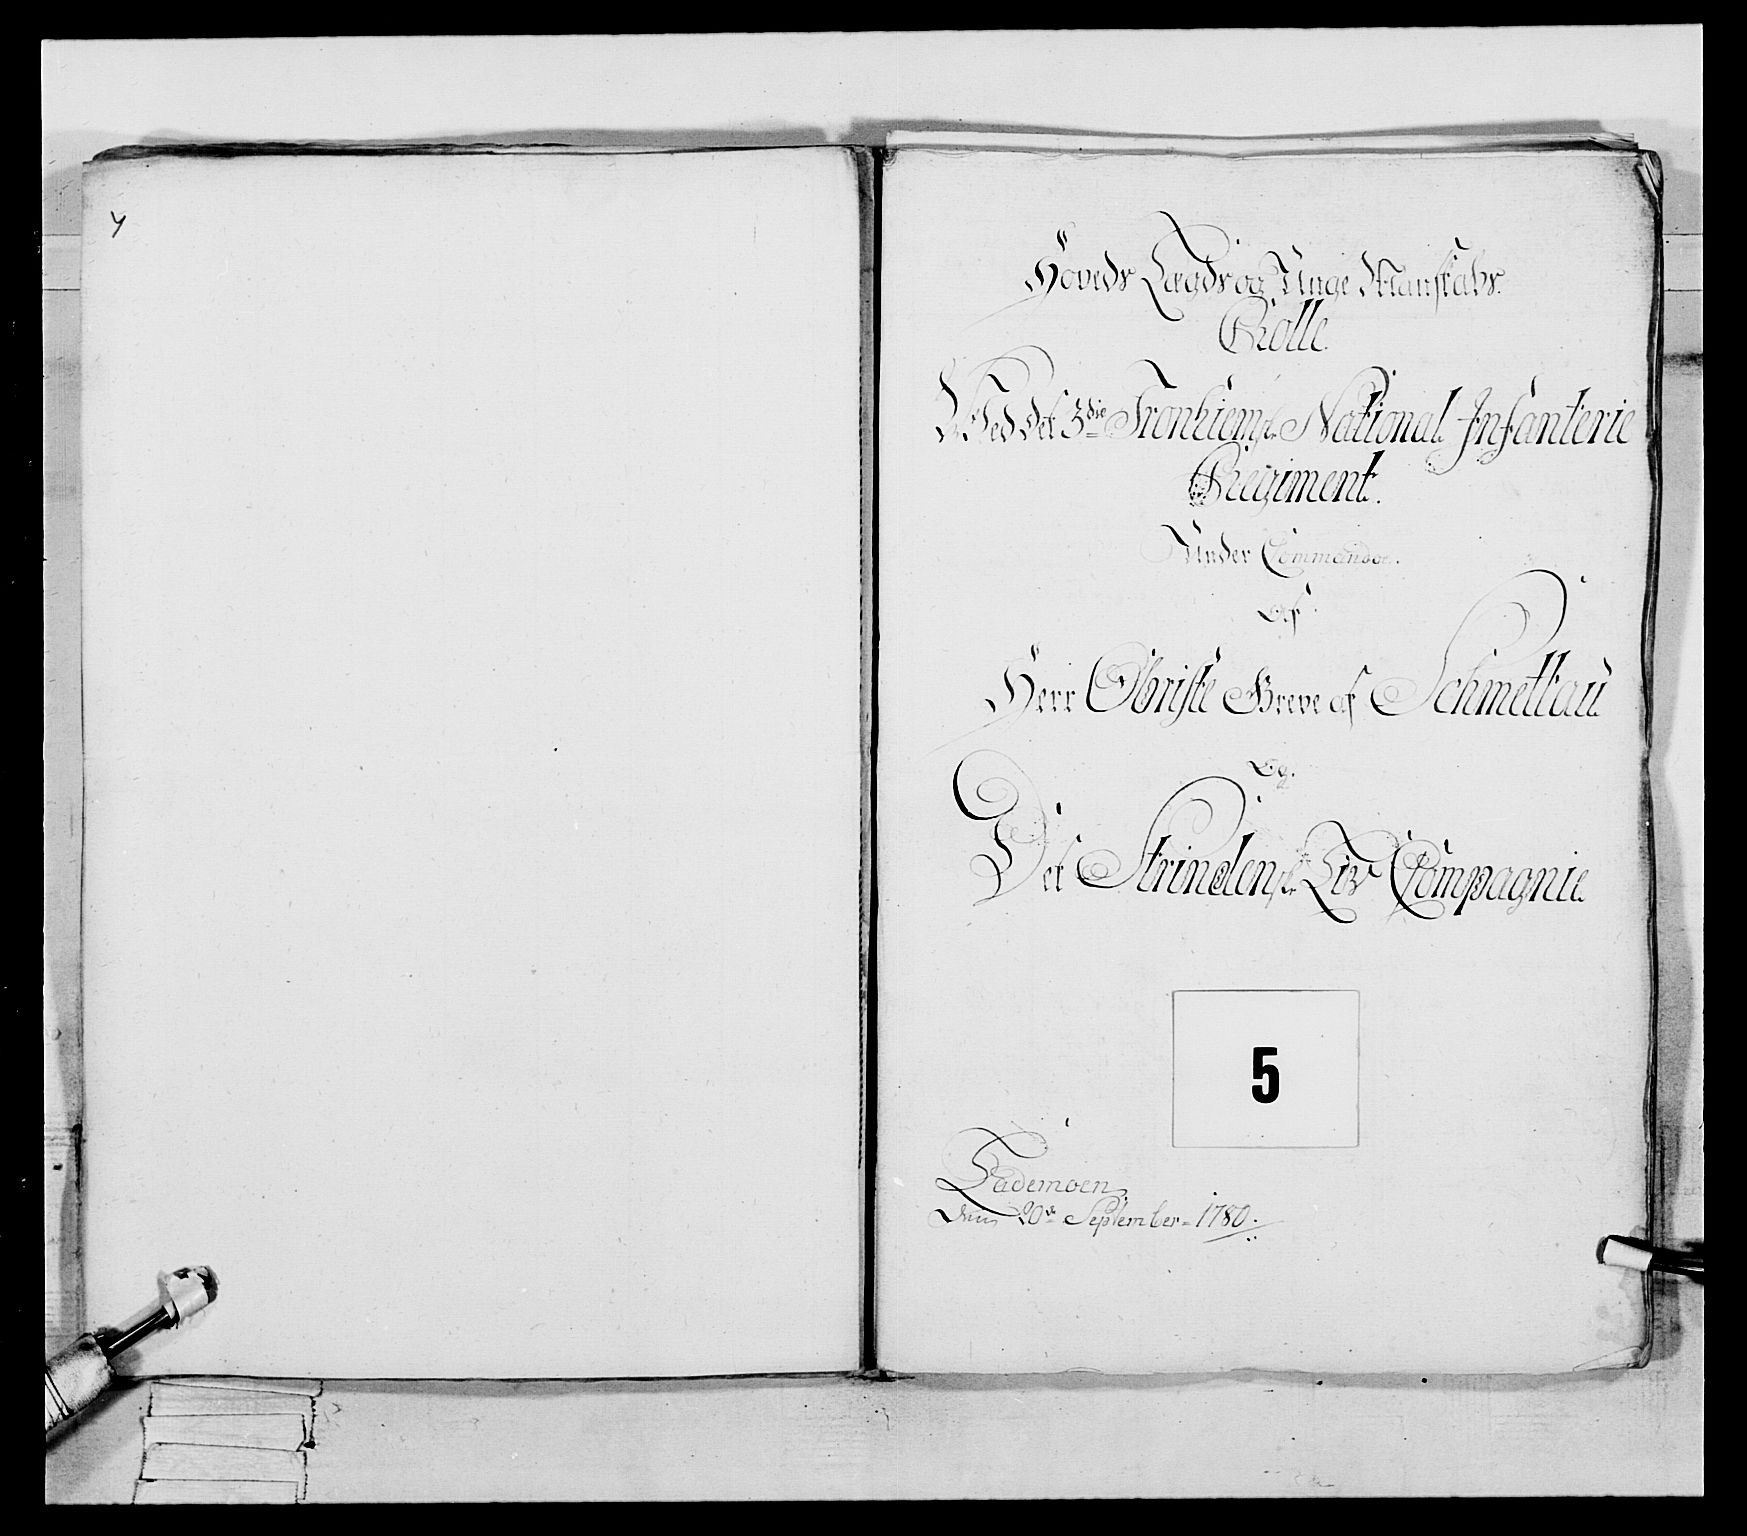 4
Hoveds Lægds og Unge Mandskabs
Rolle.
Ved det 3die Tronhiemske National Infanterie
Regiment.
Under Commando
Af
Herr Obriste Greve af Schmettau
Og
Det Strindenske Liv Compagnie
5
Lademoen
den 20de September 1780.